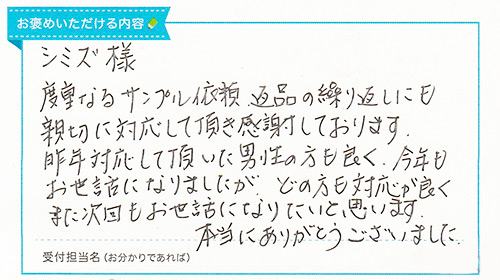 お褒めいただける内容
シミズ様
度重なるサンプル依頼 返品の繰り返しにも
親切に対応して頂き感謝しております.
昨年対応して頂いた男性の方も良く、今年も
お世話になりましたが、どの方も対応が良く
また次回もお世話になりたいと思います.
本当にありがとうございました.
受付担当名(お分かりであれば)